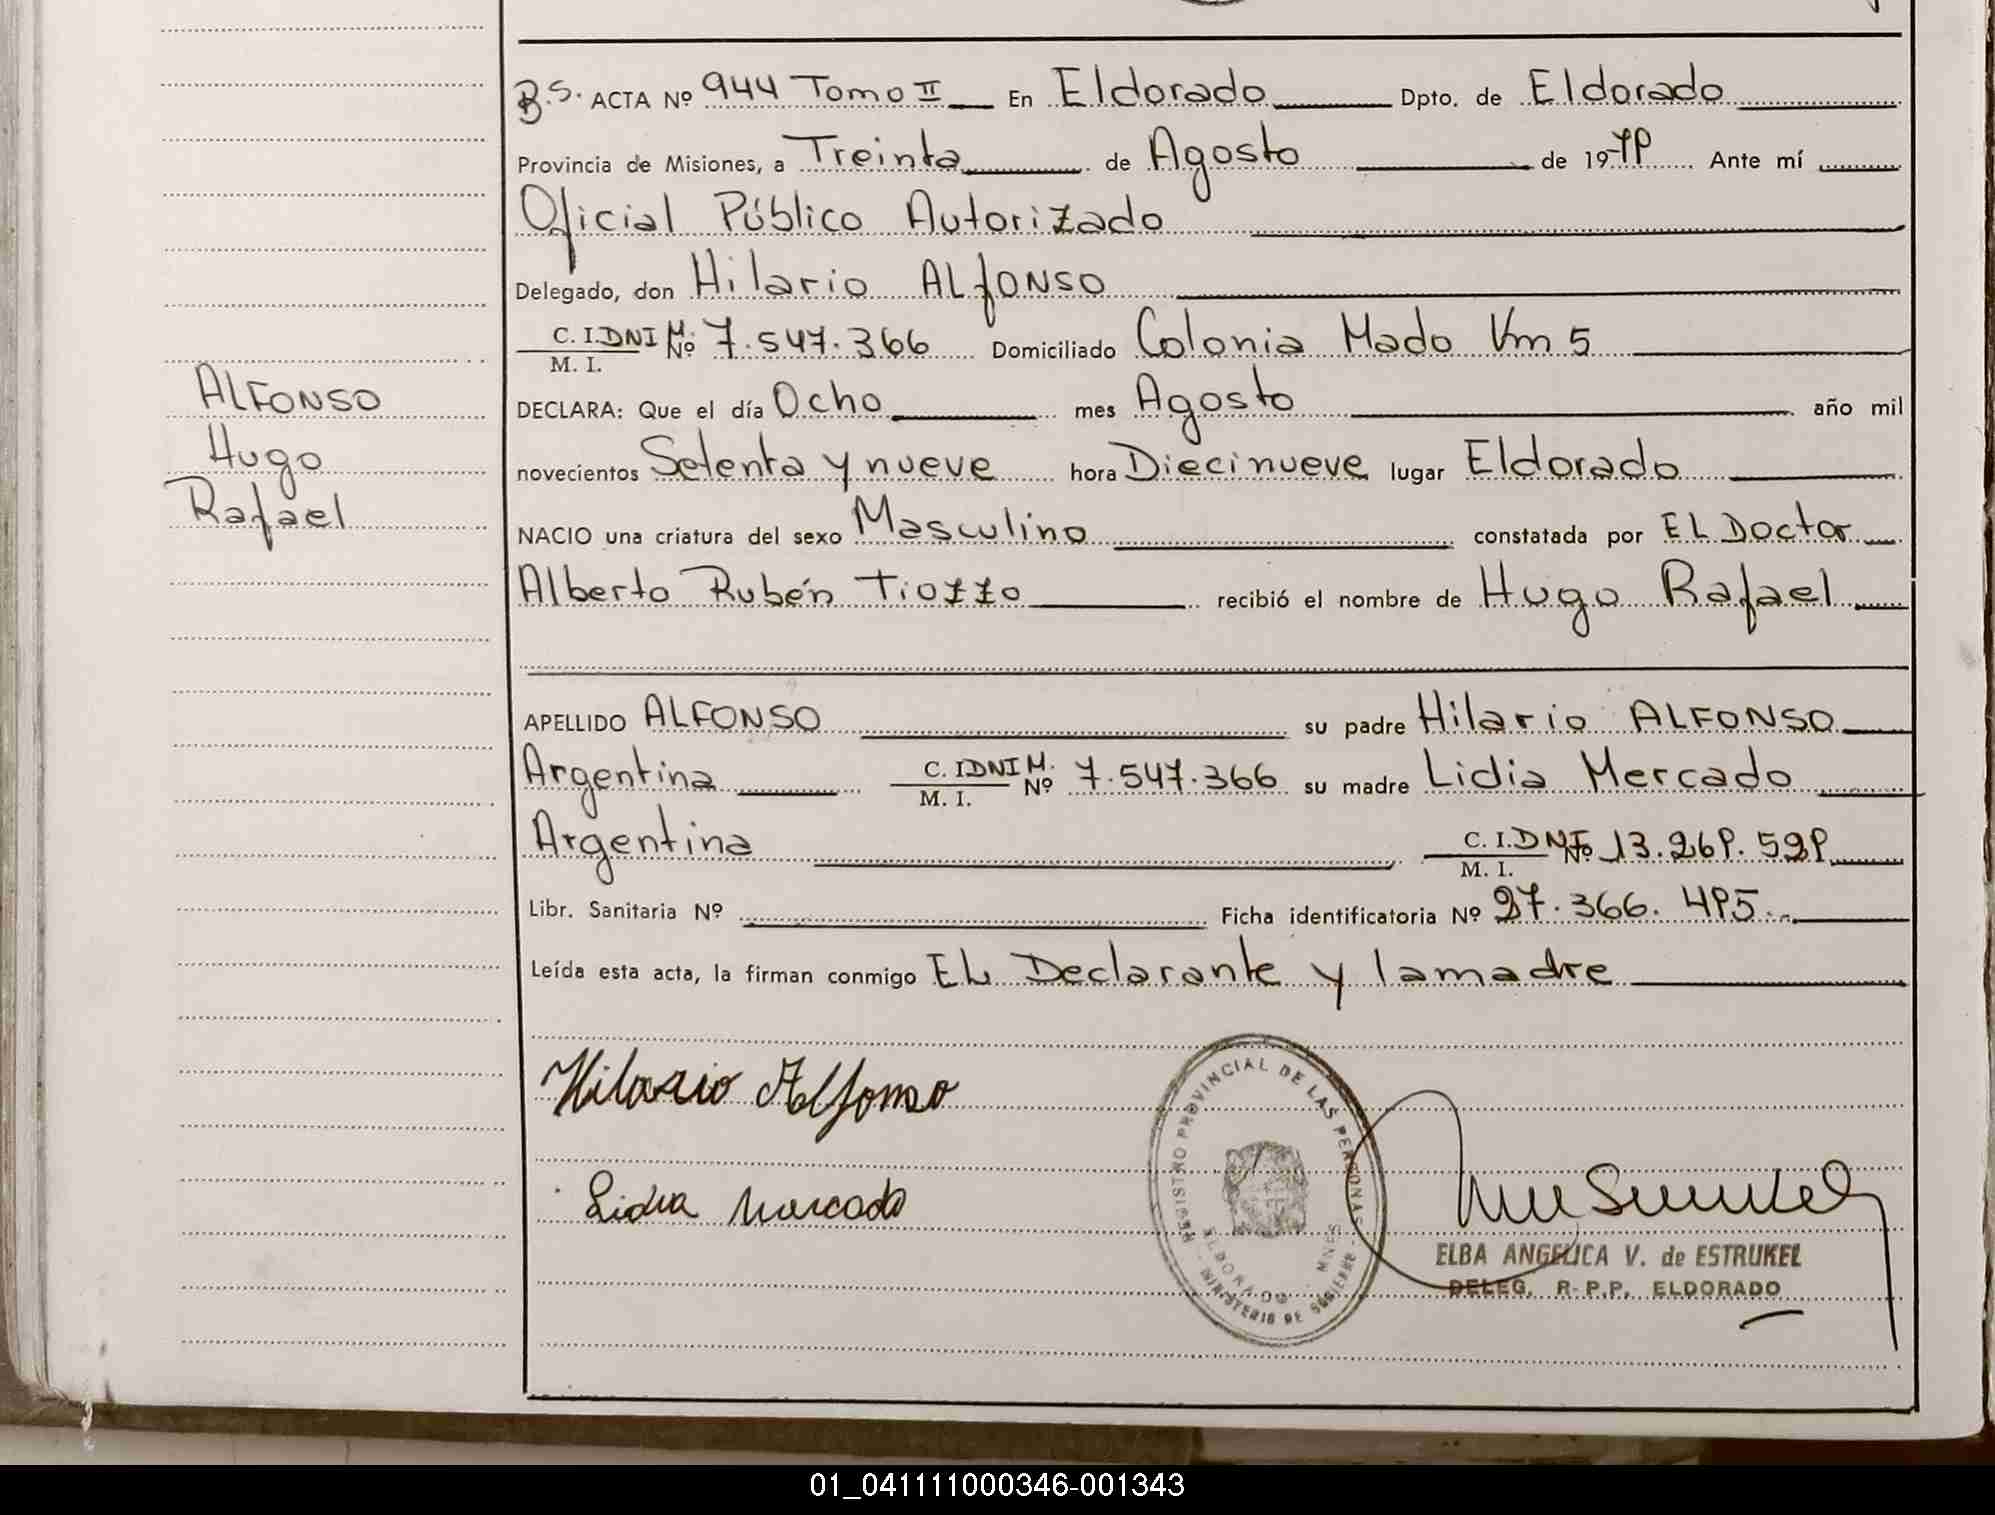 B.S. ACTA Nº 944 Tomo II En Eldorado Dpto. de Eldorado
Provincia de Misiones, a Treinta de Agosto de 1979 Ante mí
Oficial Público Autorizado
Delegado, don Hilario ALfONSO
C. I. DNI M. Nº 7.547.366 Domiciliado Colonia Mado Km 5
M. I.
ALFONSO
DECLARA: Que el día Ocho mes Agosto año mil
Hugo
novecientos Setenta y nueve hora Diecinueve lugar Eldorado
Rafael
NACIO una criatura del sexo Masculino constatada por EL Doctor
Alberto Rubén Tiozzo recibió el nombre de Hugo Rafael
APELLIDO ALFONSO su padre Hilario ALFONSO
Argentina C. I. DNI M. Nº 7.547.366 su madre Lidia Mercado
M. I.
Argentina C. I. DNI Nº 13.269.529
M. I.
Libr. Sanitaria Nº Ficha identificatoria Nº 27.366.495
Leída esta acta, la firman conmigo EL Declarante y la madre
Hilario Alfonso
Lidia Mercado
REGISTRO PROVINCIAL DE LAS PERSONAS
ELDORADO MNES
MINISTERIO DE GOBIERNO
ELBA ANGELICA V. de ESTRUKEL
DELEG. R. P. P. ELDORADO
01_041111000346-001343